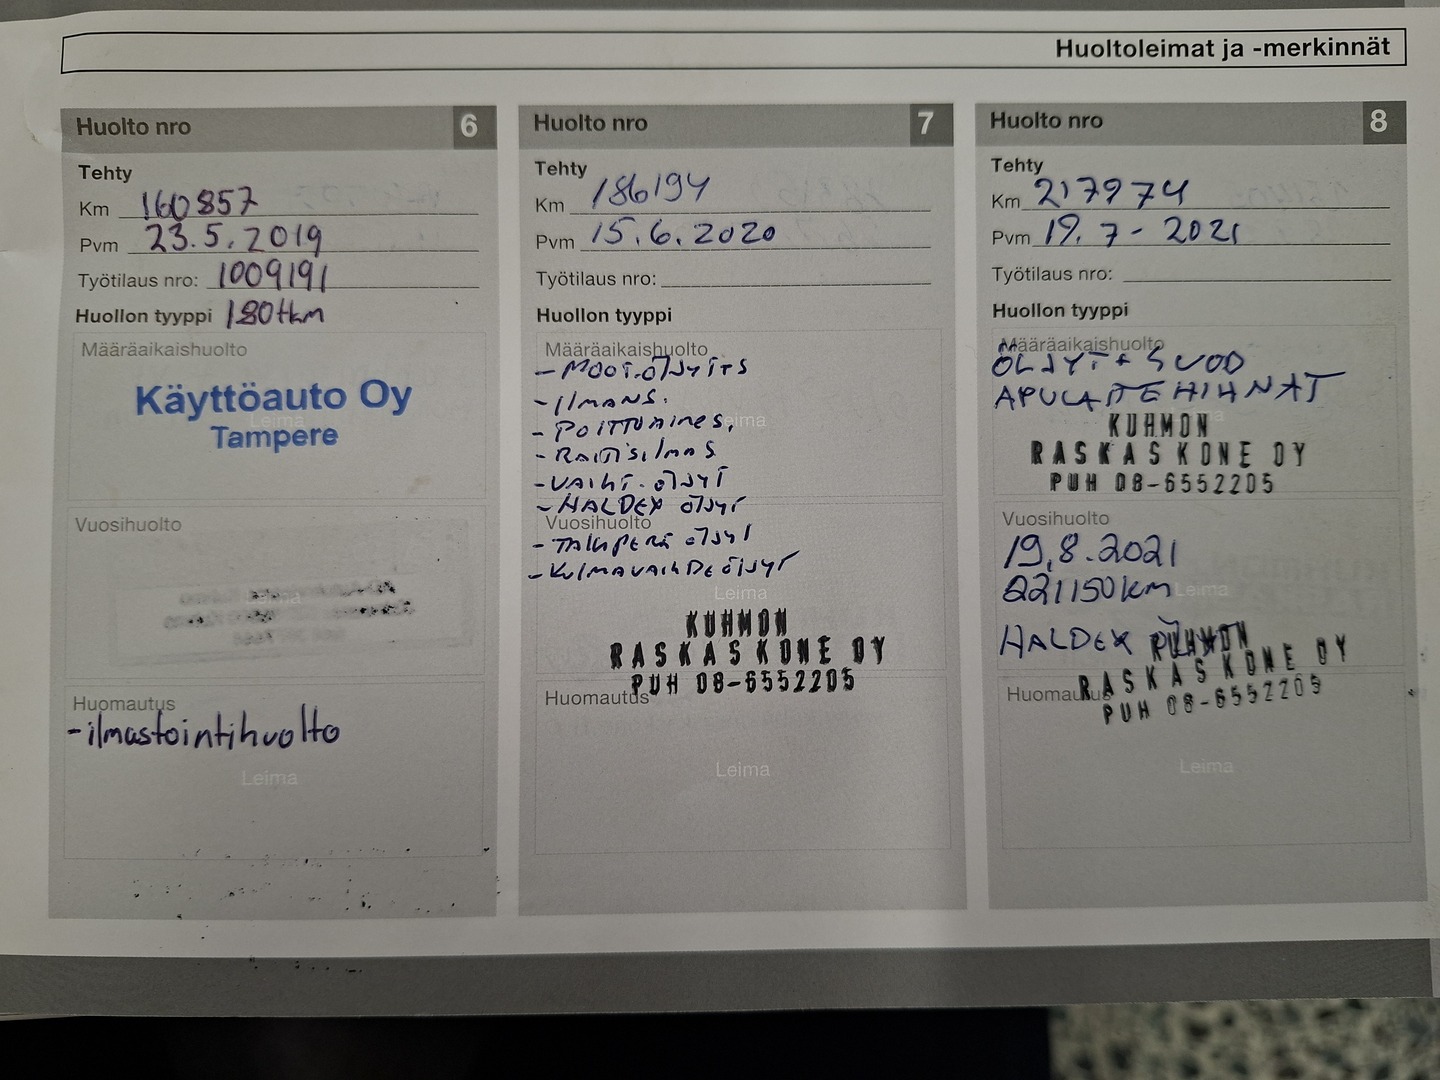 Huoltoleimat ja -merkinnät
Huolto nro 6
Tehty
Km 160857
Pvm 23.5.2019
Työtilaus nro: 1009191
Huollon tyyppi 180tkm
Määräaikaishuolto
Käyttöauto Oy
Leima
Tampere
Vuosihuolto
Leima
Huomautus
-ilmastointihuolto
Leima
Huolto nro 7
Tehty
Km 186194
Pvm 15.6.2020
Työtilaus nro:
Huollon tyyppi
Määräaikaishuolto
- MOOT.ÖLJYT+S
- ILMANS.
- POLTTOAINES.
Leima
- RAITISILMAS
- VAIHT. ÖLJYT
- HALDEX ÖLJYT
Vuosihuolto
- TAKAPERÄ ÖLJYT
- KULMAVAIHDE ÖLJYT
Leima
KUHMON
RASKASKONE OY
PUH 08-6552205
Huomautus
Leima
Huolto nro 8
Tehty
Km 217974
Pvm 19.7-2021
Työtilaus nro:
Huollon tyyppi
Määräaikaishuolto
ÖLJYT+SUOD
APULAITEHIHNAT
KUHMON
RASKASKONE OY
PUH 08-6552205
Vuosihuolto
19.8.2021
221150km
Leima
HALDEX
KUHMON
RASKASKONE OY
Huomautus
PUH 08-6552205
Leima